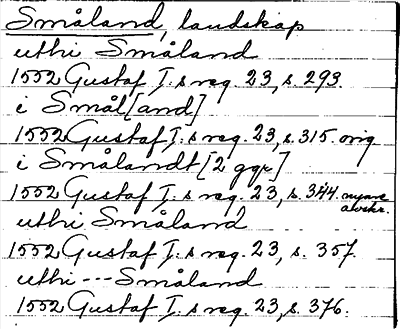 Småland, landskap
uthi Småland
1552 Gustaf I:s reg. 23, s. 293.
i Smål[and]
1552 Gustaf I:s reg. 23, s. 315. orig
i Smålandt [2 ggr]
1552 Gustaf I:s reg. 23, s. 344. nyare avskr.
uthi Småland
1552 Gustaf I:s reg. 23, s. 357.
uthi --- Småland
1552 Gustaf I:s reg. 23, s. 376.